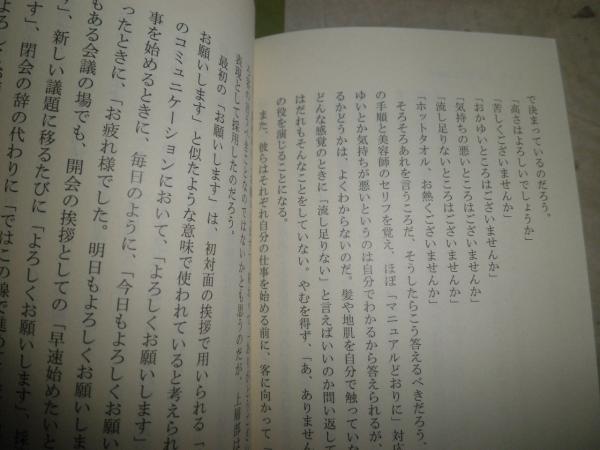 で決まっているのだろう。
「高さはよろしいでしょうか」
「苦しくございませんか」
「おかゆいところはございませんか」
「気持ちの悪いところはございませんか」
「流し足りないところはございませんか」
「ホットタオル、お熱くございませんか」
そろそろあれを言うころだ、そうしたらこう答えるべきだろう、
の手順と美容師のセリフを覚え、ほぼ「マニュアルどおりに」対応
ゆいとか気持ちが悪いというのは自分でわかるから答えられるが、
るかどうかは、よくわからないのだ。髪や地肌を自分で触っていな
どんな感覚のときに「流し足りない」と言えばいいのか問い返して
はだれもそんなことをしていない。やむを得ず、「あ、ありません
の役を演じることになる。
また、彼らはそれぞれ自分の仕事を始める前に、客に向かって「
なのではないかとも思うのだが、上層部は
表現として採用したのだろう。
最初の「お願いします」は、初対面の挨拶で用いられる「
お願いします」と似たような意味で使われていると考えられ
のコミュニケーションにおいて、「よろしくお願いします」
事を始めるときに、毎日のように、「今日もよろしくお願い
ったときに、「お疲れ様でした。明日もよろしくお願いしま
もある会議の場でも、開会の挨拶としての「早速始めたいと
す」、新しい議題に移るたびに「よろしくお願いします」、採
す」、閉会の辞の代わりに「ではこの線で進め